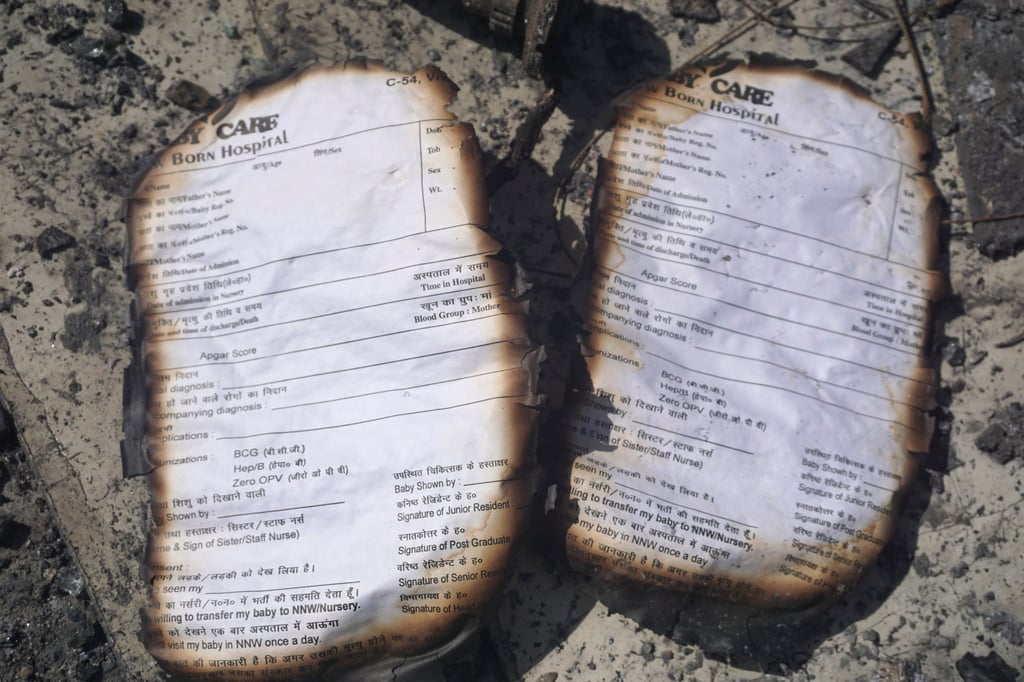 C-54,
BY CARE
BORN HOSPITAL
आयु/Age लिंग/Sex
DoB
ToB
Sex
Wt.
Name
का नाम/Father's Name
Reg. No.
का नाम/Mother's Name
Mother's Reg. No.
Mother's Name
तिथि/Date of Admission
गृह प्रवेश तिथि
of admission in Nursery
मृत्यु की तिथि व समय
and time of discharge/Death
अस्पताल में समय
Time in Hospital
खून का ग्रुप: मां
Blood Group : Mother
Apgar Score
निदान
diagnosis :
हो जाने वाले रोगों का निदान
companying diagnosis :
plications :
unizations :
BCG (बी.सी.जी.)
Hep/B (हेपा० बी)
Zero OPV (जीरो ओ पी वी)
शिशु को दिखाने वाली
Shown by :
तथा हस्ताक्षर : सिस्टर/स्टाफ नर्स
& Sign of Sister/Staff Nurse)
उपस्थित चिकित्सक के हस्ताक्षर
Baby Shown by :
कनिष्ठ रेजिडेन्ट के ह०
Signature of Junior Resident
स्नातकोत्तर के ह०
Signature of Post Graduate
वरिष्ठ रेजिडेन्ट के ह०
Signature of Senior
विभागाध्यक्ष के ह०
Signature of
लड़के/लड़की को देख लिया है।
seen my
का नर्सरी/न०न० में भर्ती की सहमति देता हूँ।
willing to transfer my baby to NNW/Nursery.
को देखने एक बार अस्पताल में आऊंगा
visit my baby in NNW once a day.
की जानकारी है कि अगर उसकी मृत्यु होने पर
BY CARE
BORN HOSPITAL
C-54,
आयु/Age लिंग/Sex
Name
Father's Name
Reg. No.
Mother's Name
Mother's Reg. No.
Mother's Name
तिथि/Date of Admission
गृह प्रवेश तिथि
of admission in Nursery
मृत्यु की तिथि व समय
and time of discharge/Death
अस्पताल में समय
Time in Hospital
खून का ग्रुप: मां
Blood Group :
Apgar Score
निदान
diagnosis :
हो जाने वाले रोगों का निदान
companying diagnosis :
plications :
unizations :
BCG (बी.सी.जी.)
Hep/B (हेपा० बी)
Zero OPV (जीरो ओ पी वी)
शिशु को दिखाने वाली
Shown by :
हस्ताक्षर : सिस्टर/स्टाफ नर्स
& Sign of Sister/Staff Nurse)
उपस्थित चिकित्सक के हस्ताक्षर
Baby Shown by :
कनिष्ठ रेजिडेन्ट के ह०
Signature of Junior
स्नातकोत्तर के ह०
Signature of Post
Signature of
लड़के/लड़की को देख लिया है।
seen my
का नर्सरी/न०न० में भर्ती की सहमति देता हूँ।
willing to transfer my baby to NNW/Nursery.
देखने एक बार अस्पताल में आऊंगा
my baby in NNW once a day.
की जानकारी है कि अगर